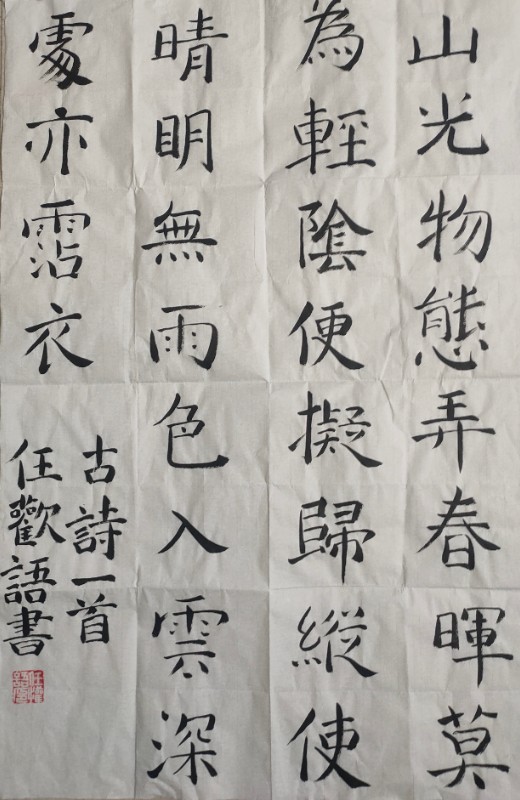 山光物態弄春暉莫
為輕陰便擬歸縱使
晴明無雨色入雲深
處亦霑衣
古詩一首
任歡語書